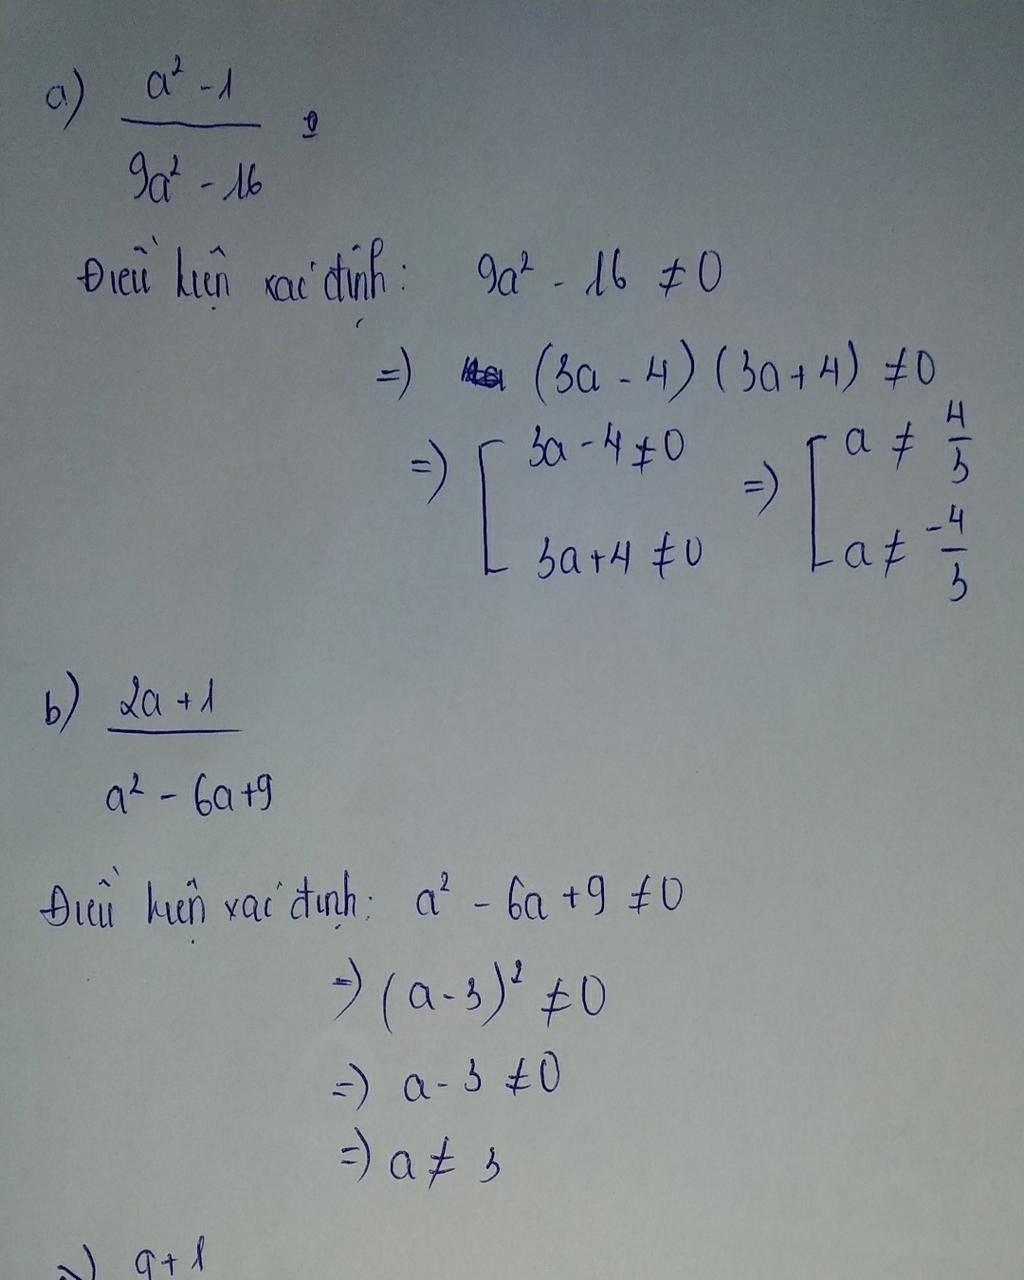 a) \frac{a² - 1}{9a² - 16}
Điều kiện xác định: 9a² - 16 ≠ 0
=) (3a - 4) (3a + 4) ≠ 0
=) [ 3a - 4 ≠ 0 =) [ a ≠ \frac{4}{3}
3a + 4 ≠ 0 a ≠ \frac{-4}{3}
b) \frac{2a + 1}{a² - 6a + 9}
Điều kiện xác định: a² - 6a + 9 ≠ 0
=) (a - 3)² ≠ 0
=) a - 3 ≠ 0
=) a ≠ 3